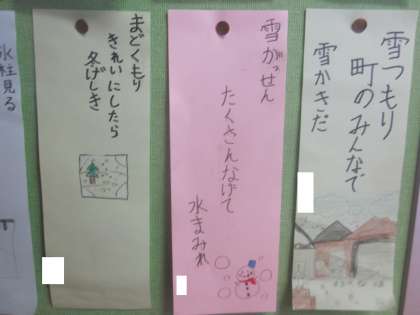 雪つもり
町のみんなで
雪かきだ
雪がっせん
たくさんなげて
水まみれ
まどくもり
きれいにしたら
冬げしき
氷柱見る